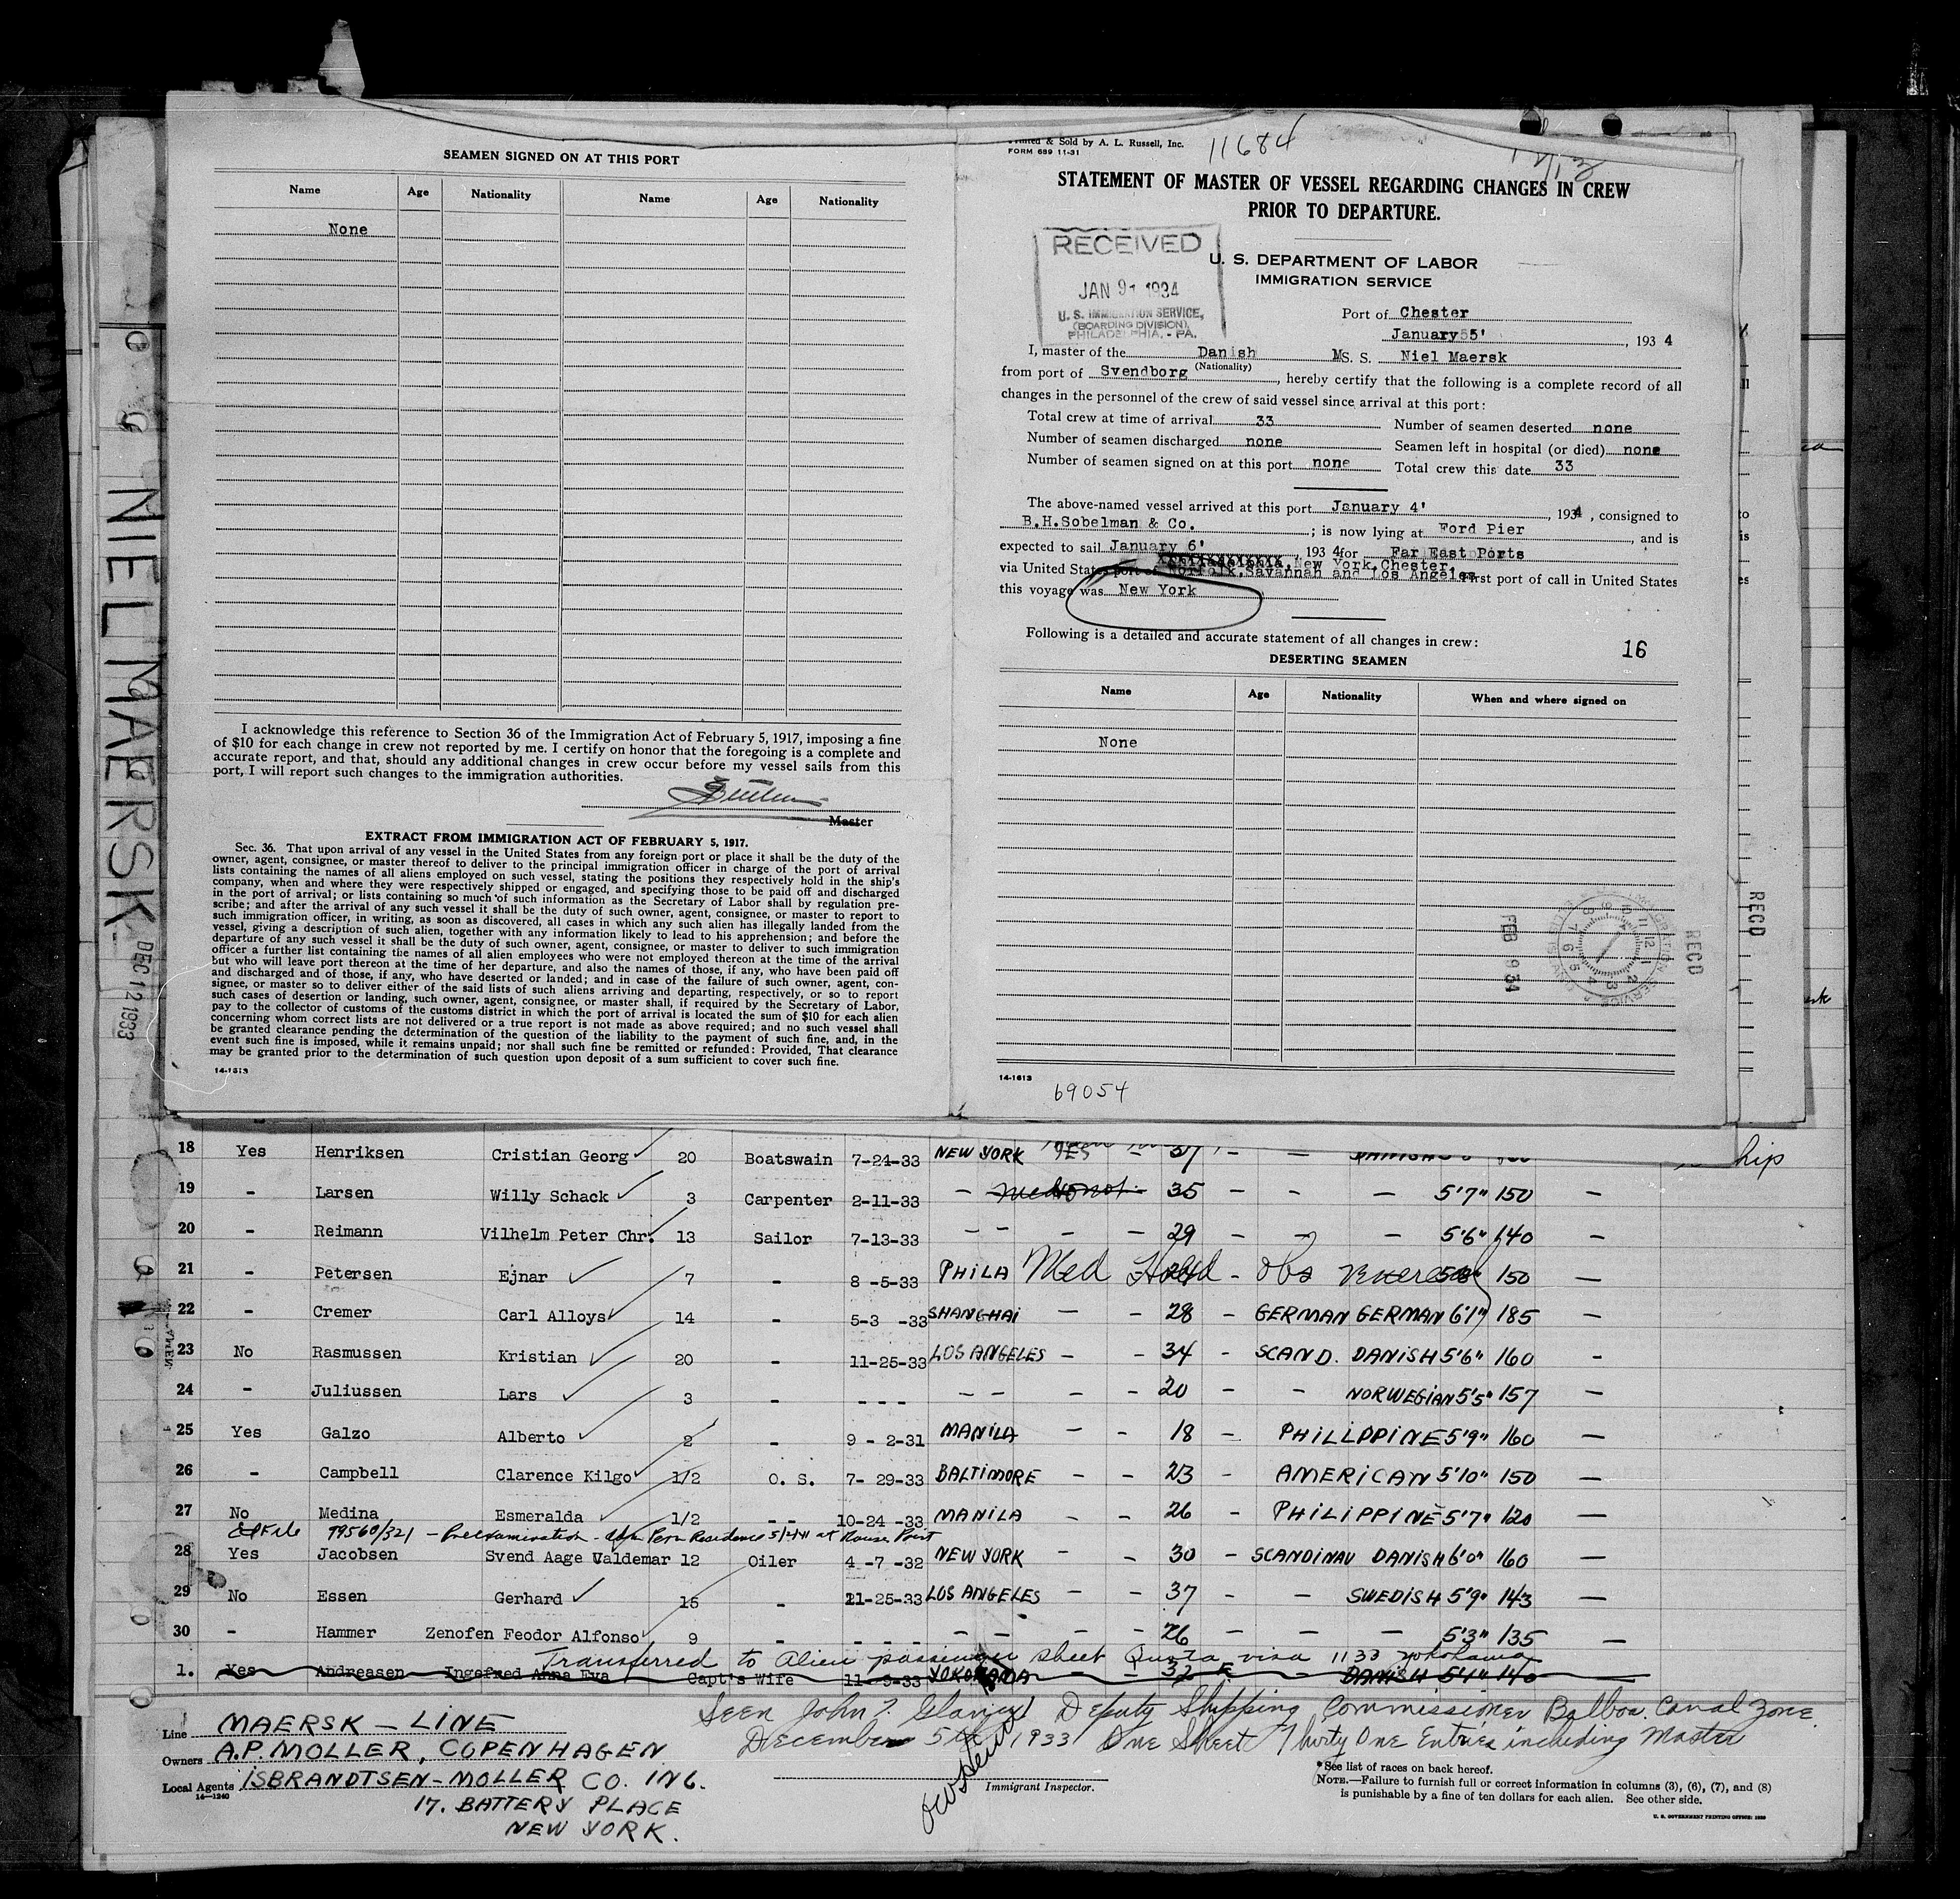 SEAMEN SIGNED ON AT THIS PORT
Name Age Nationality Name Age Nationality
None
I acknowledge this reference to Section 36 of the Immigration Act of February 5, 1917, imposing a fine
of $10 for each change in crew not reported by me. I certify on honor that the foregoing is a complete and
accurate report, and that, should any additional changes in crew occur before my vessel sails from this
port, I will report such changes to the immigration authorities.
Master
EXTRACT FROM IMMIGRATION ACT OF FEBRUARY 5, 1917.
Sec. 36. That upon arrival of any vessel in the United States from any foreign port or place it shall be the duty of the
owner, agent, consignee, or master thereof to deliver to the principal immigration officer in charge of the port of arrival
lists containing the names of all aliens employed on such vessel, stating the positions they respectively hold in the ship's
company, when and where they were respectively shipped or engaged, and specifying those to be paid off and discharged
in the port of arrival; or lists containing so much of such information as the Secretary of Labor shall by regulation pre-
scribe; and after the arrival of any such vessel it shall be the duty of such owner, agent, consignee, or master to report to
such immigration officer, in writing, as soon as discovered, all cases in which any such alien has illegally landed from the
vessel, giving a description of such alien, together with any information likely to lead to his apprehension; and before the
departure of any such vessel it shall be the duty of such owner, agent, consignee, or master to deliver to such immigration
officer a further list containing the names of all alien employees who were not employed thereon at the time of the arrival
but who will leave port thereon at the time of her departure, and also the names of those, if any, who have been paid off
and discharged and of those, if any, who have deserted or landed; and in case of the failure of such owner, agent, con-
signee, or master so to deliver either of the said lists of such aliens arriving and departing, respectively, or so to report
such cases of desertion or landing, such owner, agent, consignee, or master shall, if required by the Secretary of Labor,
pay to the collector of customs of the customs district in which the port of arrival is located the sum of $10 for each alien
concerning whom correct lists are not delivered or a true report is not made as above required; and no such vessel shall
be granted clearance pending the determination of the question of the liability to the payment of such fine, and, in the
event such fine is imposed, while it remains unpaid; nor shall such fine be remitted or refunded: Provided, That clearance
may be granted prior to the determination of such question upon deposit of a sum sufficient to cover such fine.
14-1613
Printed & Sold by A. L. Russell, Inc.
FORM 689 11-31
11684
STATEMENT OF MASTER OF VESSEL REGARDING CHANGES IN CREW
PRIOR TO DEPARTURE.
RECEIVED
JAN 9 1934
U. S. IMMIGRATION SERVICE,
(BOARDING DIVISION),
PHILADELPHIA, - PA.
U. S. DEPARTMENT OF LABOR
IMMIGRATION SERVICE
Port of Chester
January 5' , 193 4
I, master of the Danish MS. S. Niel Maersk
(Nationality)
from port of Svendborg , hereby certify that the following is a complete record of all
changes in the personnel of the crew of said vessel since arrival at this port:
Total crew at time of arrival 33 Number of seamen deserted none
Number of seamen discharged none Seamen left in hospital (or died) none
Number of seamen signed on at this port none Total crew this date 33
The above-named vessel arrived at this port January 4' , 1934 , consigned to
B.H.Sobelman & Co. ; is now lying at Ford Pier , and is
expected to sail January 6' , 193 4 for Far East Ports
via United States port of New York, Chester,
Norfolk, Savannah and Los Angeles First port of call in United States
this voyage was New York
Following is a detailed and accurate statement of all changes in crew:
16
DESERTING SEAMEN
Name Age Nationality When and where signed on
None
FEB 9 34
RECD
RECD
14-1613
69054
NIEL MAERSK
DEC 12 1933
18 Yes Henriksen Cristian Georg 20 Boatswain 7-24-33 NEW YORK YES - 37 - - DANISH
ship
19 - Larsen Willy Schack 3 Carpenter 2-11-33 - - 35 - - - 5'7" 150 -
20 - Reimann Vilhelm Peter Chr. 13 Sailor 7-13-33 - - - - 29 - - - 5'6" 140 -
21 - Petersen Ejnar 7 - 8 -5-33 PHILA Med Hold - Obs Venereal 5'8" 150 -
22 - Cremer Carl Alloys 14 - 5-3 -33 SHANGHAI - - 28 - GERMAN GERMAN 6'1" 185 -
23 No Rasmussen Kristian 20 - 11-25-33 LOS ANGELES - - 34 - SCAND. DANISH 5'6" 160 -
24 - Juliussen Lars 3 - - - - - - - - 20 - - NORWEGIAN 5'5" 157 -
25 Yes Galzo Alberto 2 - 9 - 2-31 MANILA - - 18 - PHILIPPINE 5'9" 160 -
26 - Campbell Clarence Kilgo 1/2 O. S. 7- 29-33 BALTIMORE - - 23 - AMERICAN 5'10" 150 -
27 No Medina Esmeralda 1/2 - - 10-24 -33 MANILA - - 26 - PHILIPPINE 5'7" 120 -
99560/321 - Preexamination - Perm Residence at Rouses Point
28 Yes Jacobsen Svend Aage Valdemar 12 Oiler 4 -7 -32 NEW YORK - - 30 - SCANDINAV DANISH 6'0" 160 -
29 No Essen Gerhard 15 - 11-25-33 LOS ANGELES - - 37 - - SWEDISH 5'9" 143 -
30 - Hammer Zenofen Feodor Alfonso 9 - - - - - - - - 26 - - - 5'3" 135 -
Transferred to Alien passenger sheet Quota visa 1133 Yokohama
1. Yes Andreasen Ingefred Anna Eva Capt's Wife 11- 9-33 YOKOHAMA - - 32 F - DANISH 5'4" 140
Seen John Deputy Shipping Commissioner Balboa Canal Zone
December 5th 1933 One Sheet Thirty One Entries including Master
Line MAERSK - LINE
Owners A.P. MOLLER, COPENHAGEN
Local Agents ISBRANDTSEN-MOLLER CO. INC.
14-1240
17. BATTERY PLACE
NEW YORK.
Immigrant Inspector.
*See list of races on back hereof.
NOTE.—Failure to furnish full or correct information in columns (3), (6), (7), and (8)
is punishable by a fine of ten dollars for each alien. See other side.
U. S. GOVERNMENT PRINTING OFFICE: 1930